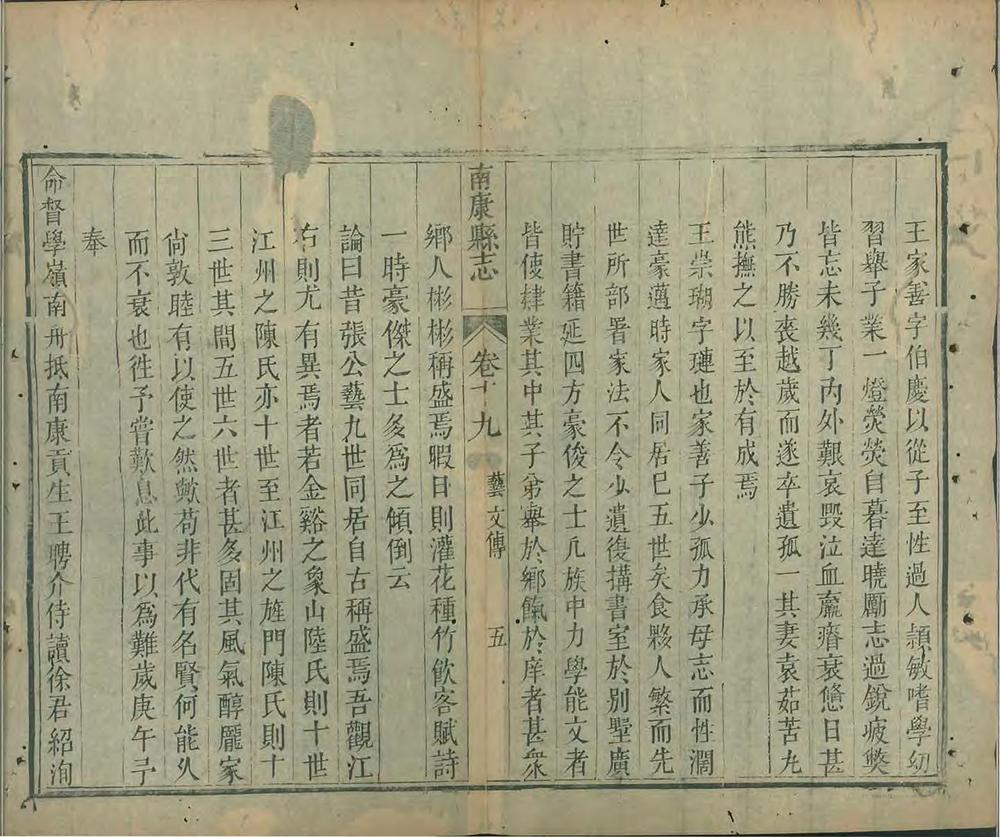 王家善字伯慶以從子至性過人頴敏嗜學幼
習舉子業一燈熒熒自暮達曉勵志過銳疲獘
皆忘未幾丁內外艱哀毀泣血羸瘠衰憊日甚
乃不勝喪越歲而遂卒遺孤一其妻袁茹苦丸
熊撫之以至於有成焉
王崇瑚字璉也家善子少孤力承母志而性濶
達豪邁時家人同居巳五世矣食夥人繁而先
世所部署家法不令少遺復搆書室於別墅廣
貯書籍延四方豪俊之士凢族中力學能文者
皆使肄業其中其子弟舉於鄉餼於庠者甚衆
南康縣志
卷十九
藝文傳
五
鄉人彬彬稱盛焉暇日則灌花種竹飲客賦詩
一時豪傑之士多為之傾倒云
論曰昔張公藝九世同居自古稱盛焉吾觀江
右則尤有異焉者若金谿之象山陸氏則十世
江州之陳氏亦十世至江州之旌門陳氏則十
三世其間五世六世者甚多固其風氣醇龎家
尙敦睦有以使之然歟苟非代有名賢何能久
而不衰也徃予嘗歎息此事以為難歲庚午予
奉
命督學嶺南舟抵南康貢生王聘介侍讀徐君紹洵